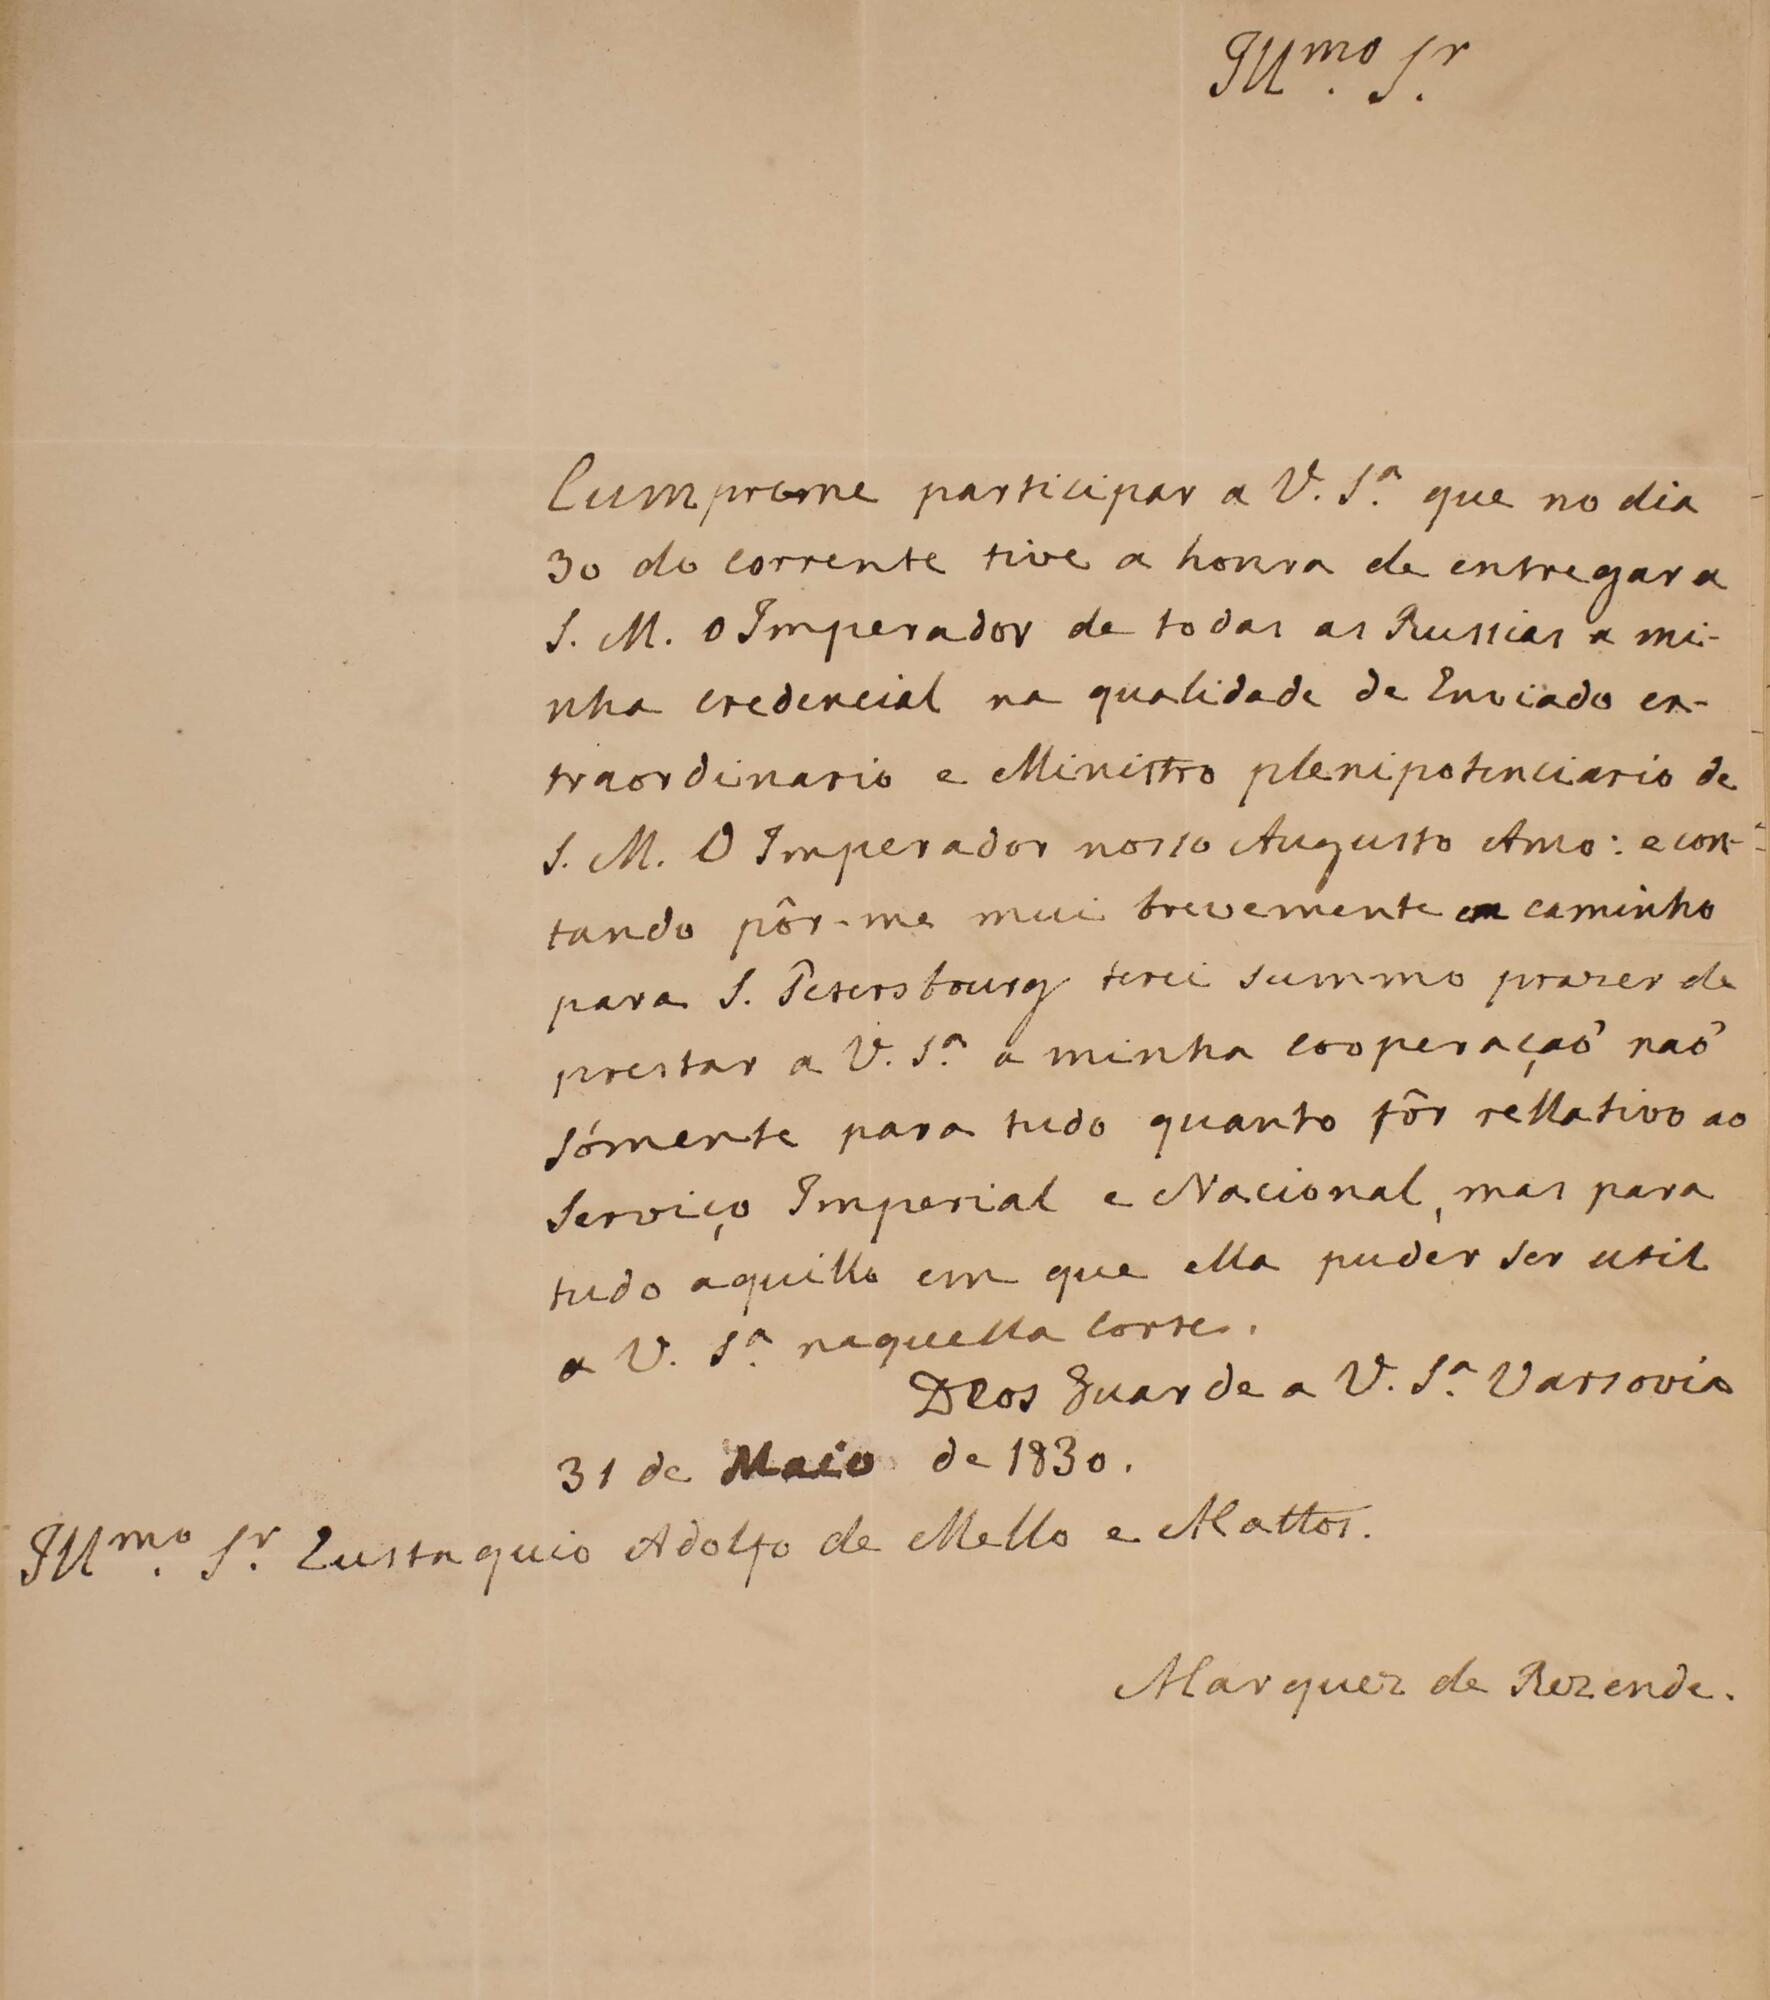 Illmo. Sr.
Cumpreme participar a V. Sa. que no dia
30 do corrente tive a honra de entregar a
S. M. o Imperador de todas as Russias a mi-
nha credencial na qualidade de Enviado ex-
traordinario e Ministro plenipotenciario de
S. M. O Imperador nosso Augusto Amo: e con-
tando pôr-me mui brevemente em caminho
para S. Petersbourg terei summo prazer de
prestar a V. Sa. a minha cooperaçaõ naõ
sómente para tudo quanto fôr rellativo ao
Serviço Imperial e Nacional, mas para
tudo aquillo em que ella puder ser util
a V. Sa. naquella Corte.
Deos Guarde a V. Sa. Varsovia
31 de Maio de 1830.
Illmo. Sr. Eustaquio Adolfo de Mello e Mattos.
Marquez de Rezende.